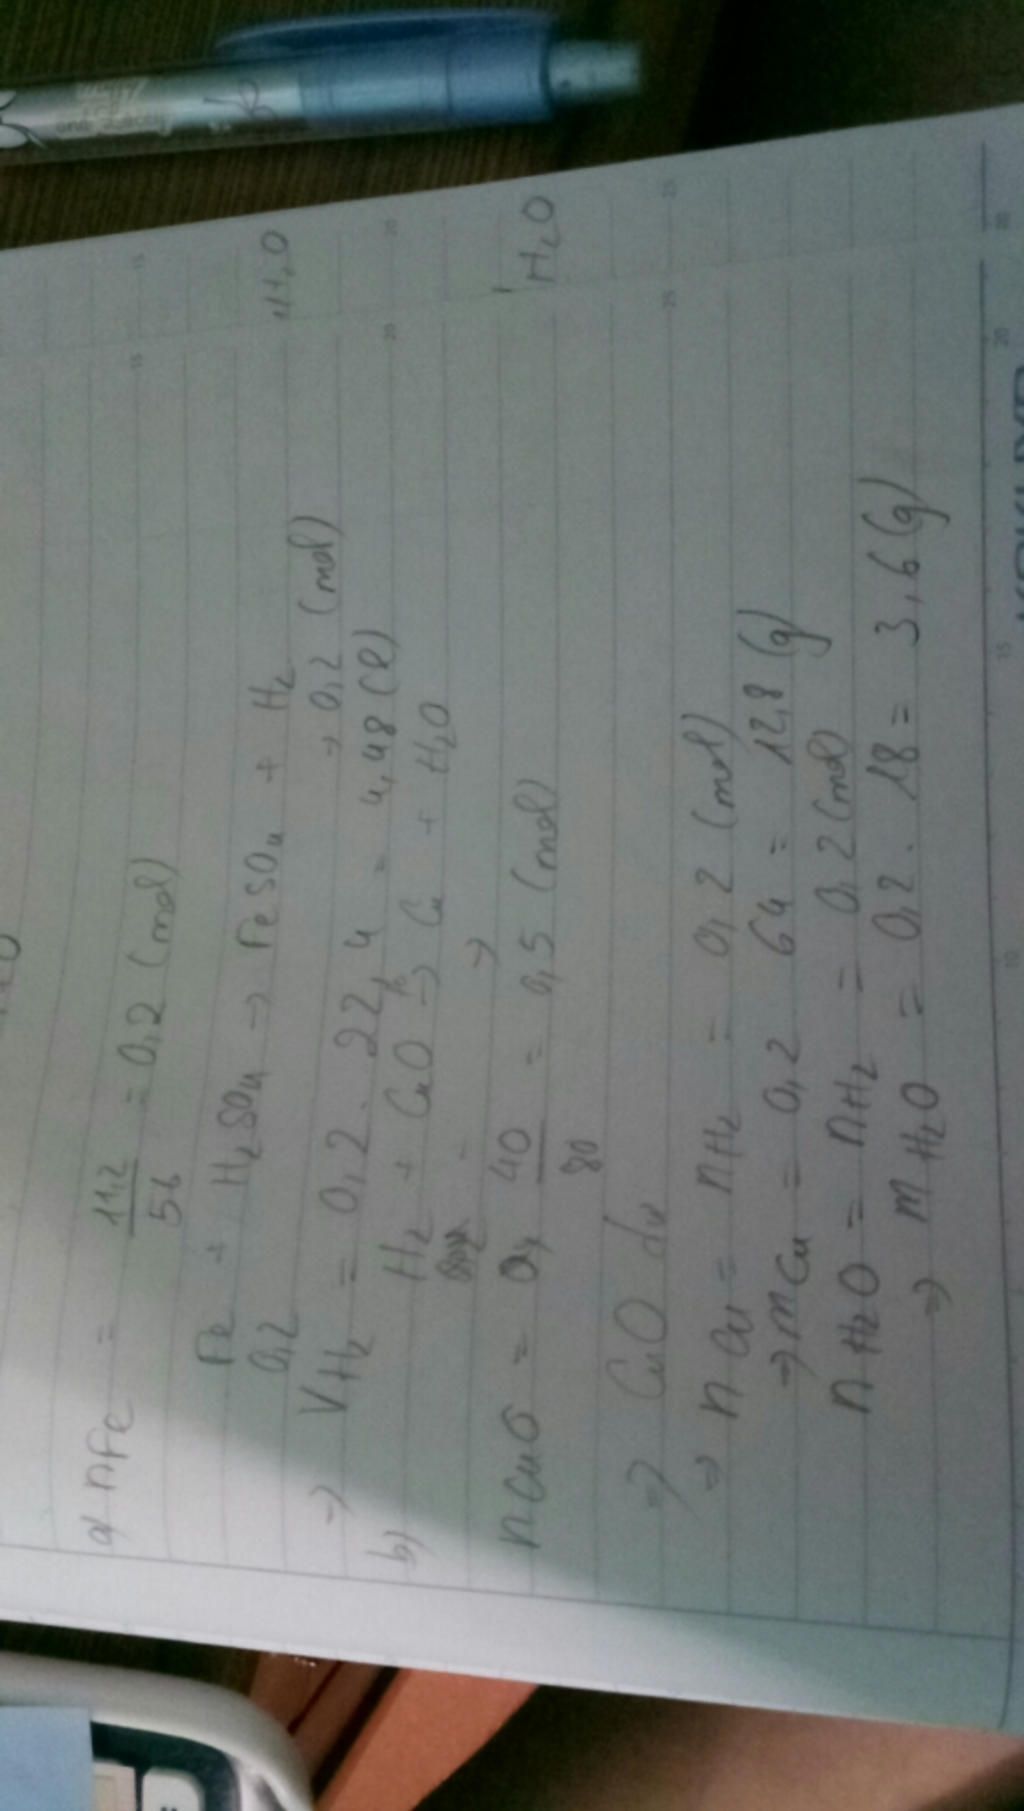 a) nFe = 11,2/56 = 0,2 (mol)
Fe + H₂SO₄ → FeSO₄ + H₂
0,2 → 0,2 (mol)
→ VH₂ = 0,2 . 22,4 = 4,48 (l)
b) H₂ + CuO → Cu + H₂O
nCuO = 40/80 = 0,5 (mol)
⇒ CuO dư
⇒ nCu = nH₂ = 0,2 (mol)
⇒ mCu = 0,2 64 = 12,8 (g)
nH₂O = nH₂ = 0,2 (mol)
⇒ mH₂O = 0,2 . 18 = 3,6 (g)
H₂O
15
20
25
10
15
20